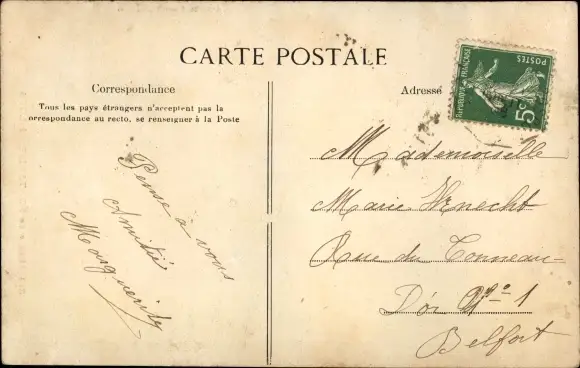 CARTE POSTALE
Correspondance
Tous les pays étrangers n'acceptent pas la
correspondance au recto, se renseigner à la Poste
Pense à vous
Amitié
Marguerite
Adresse
REPUBLIQUE FRANÇAISE
POSTES
5c
Mademoiselle
Marie Knecht
Rue du Tonneau-
D'or 1
Belfort